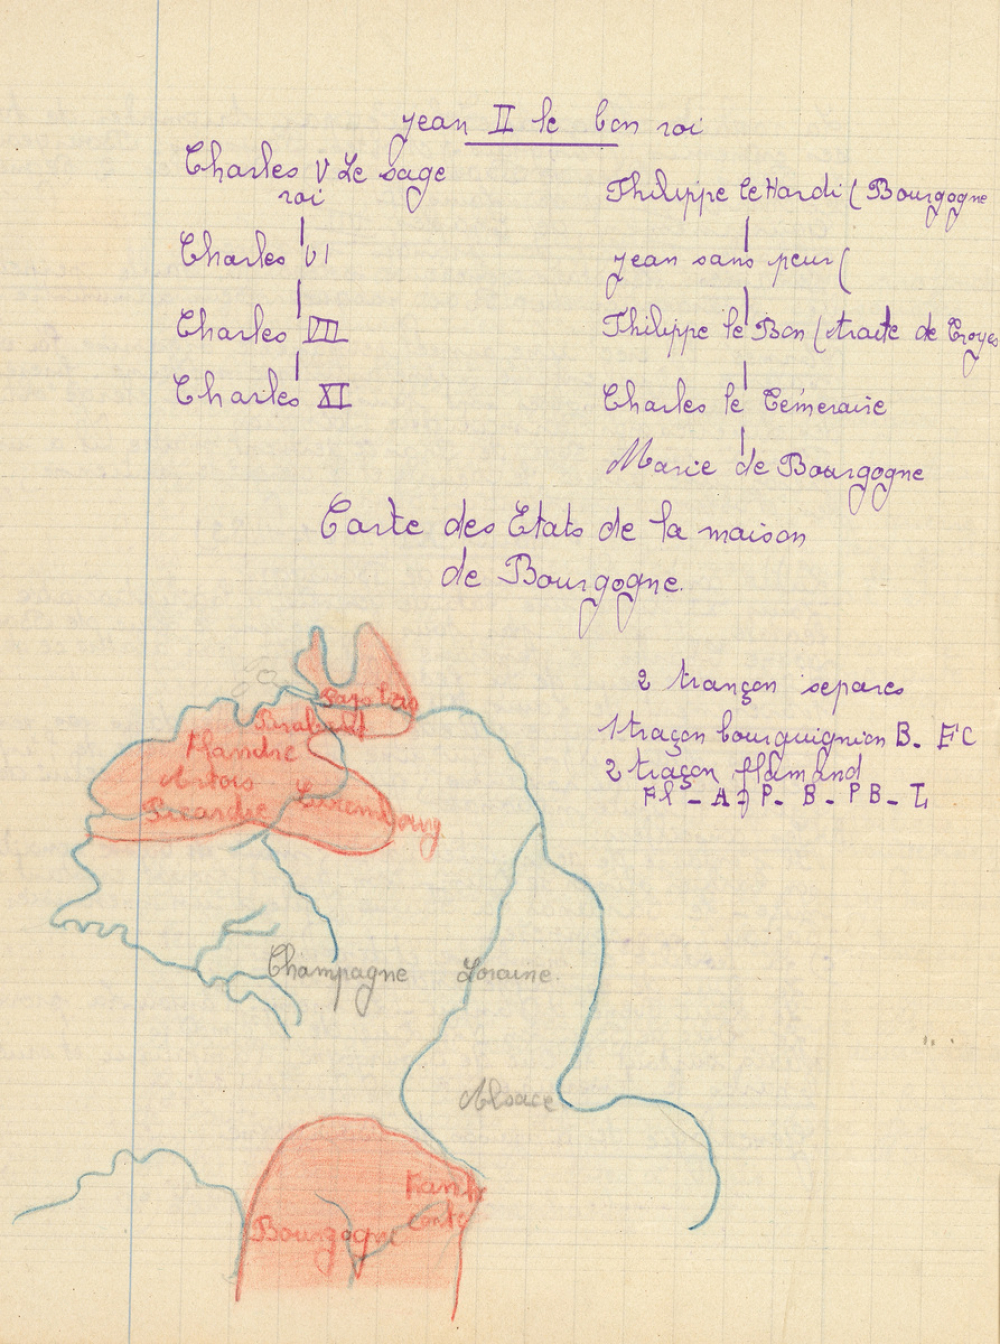 jean II le bon roi
Charles V Le sage
roi
Charles VI
Charles VII
Charles XI
Philippe le Hardi ( Bourgogne
jean sans peur (
Philippe le Bon ( traite de Troyes
Charles le Témeraire
Marie de Bourgogne
Carte des Etats de la maison
de Bourgogne.
2 trançon separes
1 traçon bourguignion B. F C
2 traçon flamand
Fl - A - P - B - P B - L
Pays bas
Brabant
Flandre
Artois
Picardie
Luxembourg
Champagne
Loraine.
Alsace
Franche
conte
Bourgogne